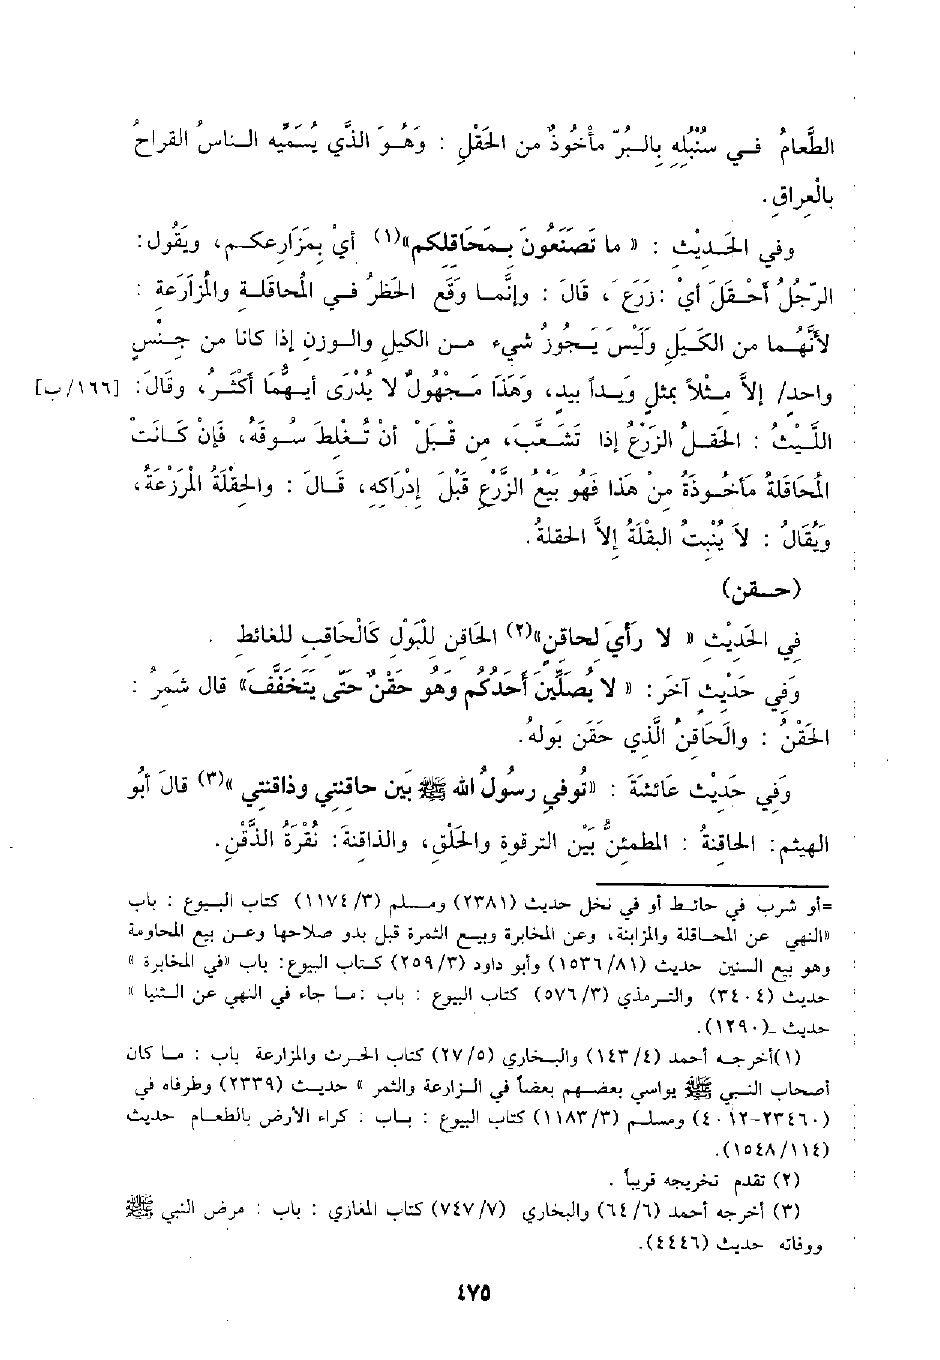 الطَّعامُ في سُنْبُلِهِ بِالبُرِّ مأْخُوذٌ من الحَقْلِ : وَهُوَ الذَّي يُسَمِّيه الناسُ القراحُ
بالْعِراقِ.
وفي الحَديْث : « ما تَصنَعُون بمَحَاقلِكم»(١) أيْ بِمَزَارِعكم، ويَقُول:
الرّجُلُ أحْقلَ أيْ : زَرَع َ، قالَ : وإنَّما وقَع الحَظرُ في المُحاقلة والمُزارَعة :
لأنَّهُما من الكَيلِ وَلَيْسَ يَجُوز شيء من الكيلِ والوزنِ إذا كانا من جِنْسٍ
واحد/ إلاَّ مثْلاً بمثلٍ وَيداً بيد، وَهَذَا مَجْهُولٌ لا يُدْرَى أيهُّمَا أكْثَرُ، وقَالَ: [١٦٦/ب]
اللَّيْثُ : الحَقلُ الزَرْعُ إذا تَشَعَّبَ، من قَبْلَ أنْ تَغْلظَ سُوقُه، فَإنْ كَانَتْ
المُحَاقلَةُ مَأخُوذَةُ مِنْ هَذا فَهُو بَيْعُ الزَّرْعِ قَبْلَ إدْرَاكِه، قَالَ : والحقْلَةُ المْزرْعَةُ،
وَيُقَالُ : لاَ يُنْبتُ البقْلَةُ إلاَّ الحقلةُ.
(حـقن)
في الحَديْث « لا رَأيَ لحاقن»(٢) الحَاقن للْبَوْلِ كَالْحَاقِب للغائط .
وَفِي حَدْيث آخَر : « لا يُصَلِّينَ أحَدُكُم وَهُو حَقْنٌ حَتَّى يَتَخَفَّفَ» قال شَمِرُ :
الحَقْنُ : والَحَاقِنُ الَّذي حَقَن بَولهُ.
وَفِي حَدَيْث عائشَةَ : «تُوفي رسولُ الله ﷺ بَين حاقنتي وذاقنتي »(٣) قالَ أبُو
الهيثم: الحاقنةُ : المطمئنُّ بَيْن الترقوة والحَلْق، والذاقنة: نُقْرَةُ الذَّقْنِ.
=أو شرب في حائط أو في نخل حديث (٢٣٨١) ومسلم (٣/ ١١٧٤) كتاب البيوع : باب
«النهي عن المحاقلة والمزابنة، وعن المخابرة وبيع الثمرة قبل بدو صلاحها وعن بيع المحاومة
وهو بيع السنين حديث (١٥٣٦/٨١) وأبو داود (٢٥٩/٣) كتاب البيوع: باب «في المخابرة »
حديث (٣٤٠٤) والترمذي (٥٧٦/٣) كتاب البيوع : باب :ما جاء في النهي عن الثنيا »
حديث ـ(١٢٩٠).
(١)أخرجه أحمد (١٤٣/٤) والبخاري (٢٧/٥) كتاب الحرث والمزارعة باب : ما كان
أصحاب النبي ﷺ يواسي بعضهم بعضاً في الزارعة والثمر » حديث (٢٣٣٩) وطرفاه في
(٢٣٤٦٠-٤٠١٢) ومسلم (١١٨٣/٣) كتاب البيوع : باب : كراء الأرض بالطعام حديث
(١٥٤٨/١١٤).
(٢) تقدم تخريجه قريباً .
(٣) أخرجه أحمد (٦٤/٦) والبخاري (٧٤٧/٧) كتاب المغازي : باب : مرض النبي ﷺ
ووفاته حديث (٤٤٤٦).
٤٧٥